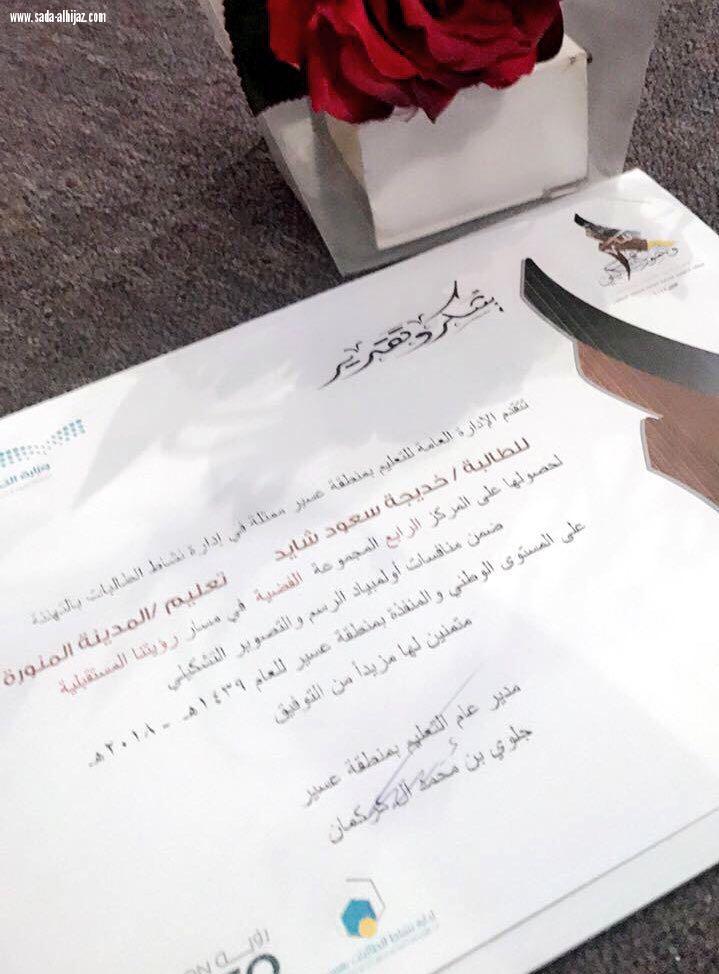 www.sada-alhijaz.com
شكر وتقدير
وزارة
تتقدم الإدارة العامة للتعليم بمنطقة عسير ممثلة في إدارة نشاط الطالبات بالتهنئة
للطالبة / خديجة سعود شايد تعليم /المدينة المنورة
لحصولها على المركز الرابع المجموعة الفضية في مسار رؤيتنا المستقبلية
ضمن منافسات أولمبياد الرسم والتصوير التشكيلي
على المستوى الوطني والمنفذة بمنطقة عسير للعام ١٤٣٩هـ - ٢٠١٨هـ
متمنين لها مزيداً من التوفيق
مدير عام التعليم بمنطقة عسير
جلوي بن محمد آل كركمان
إدارة نشاط الطالبات
رؤية